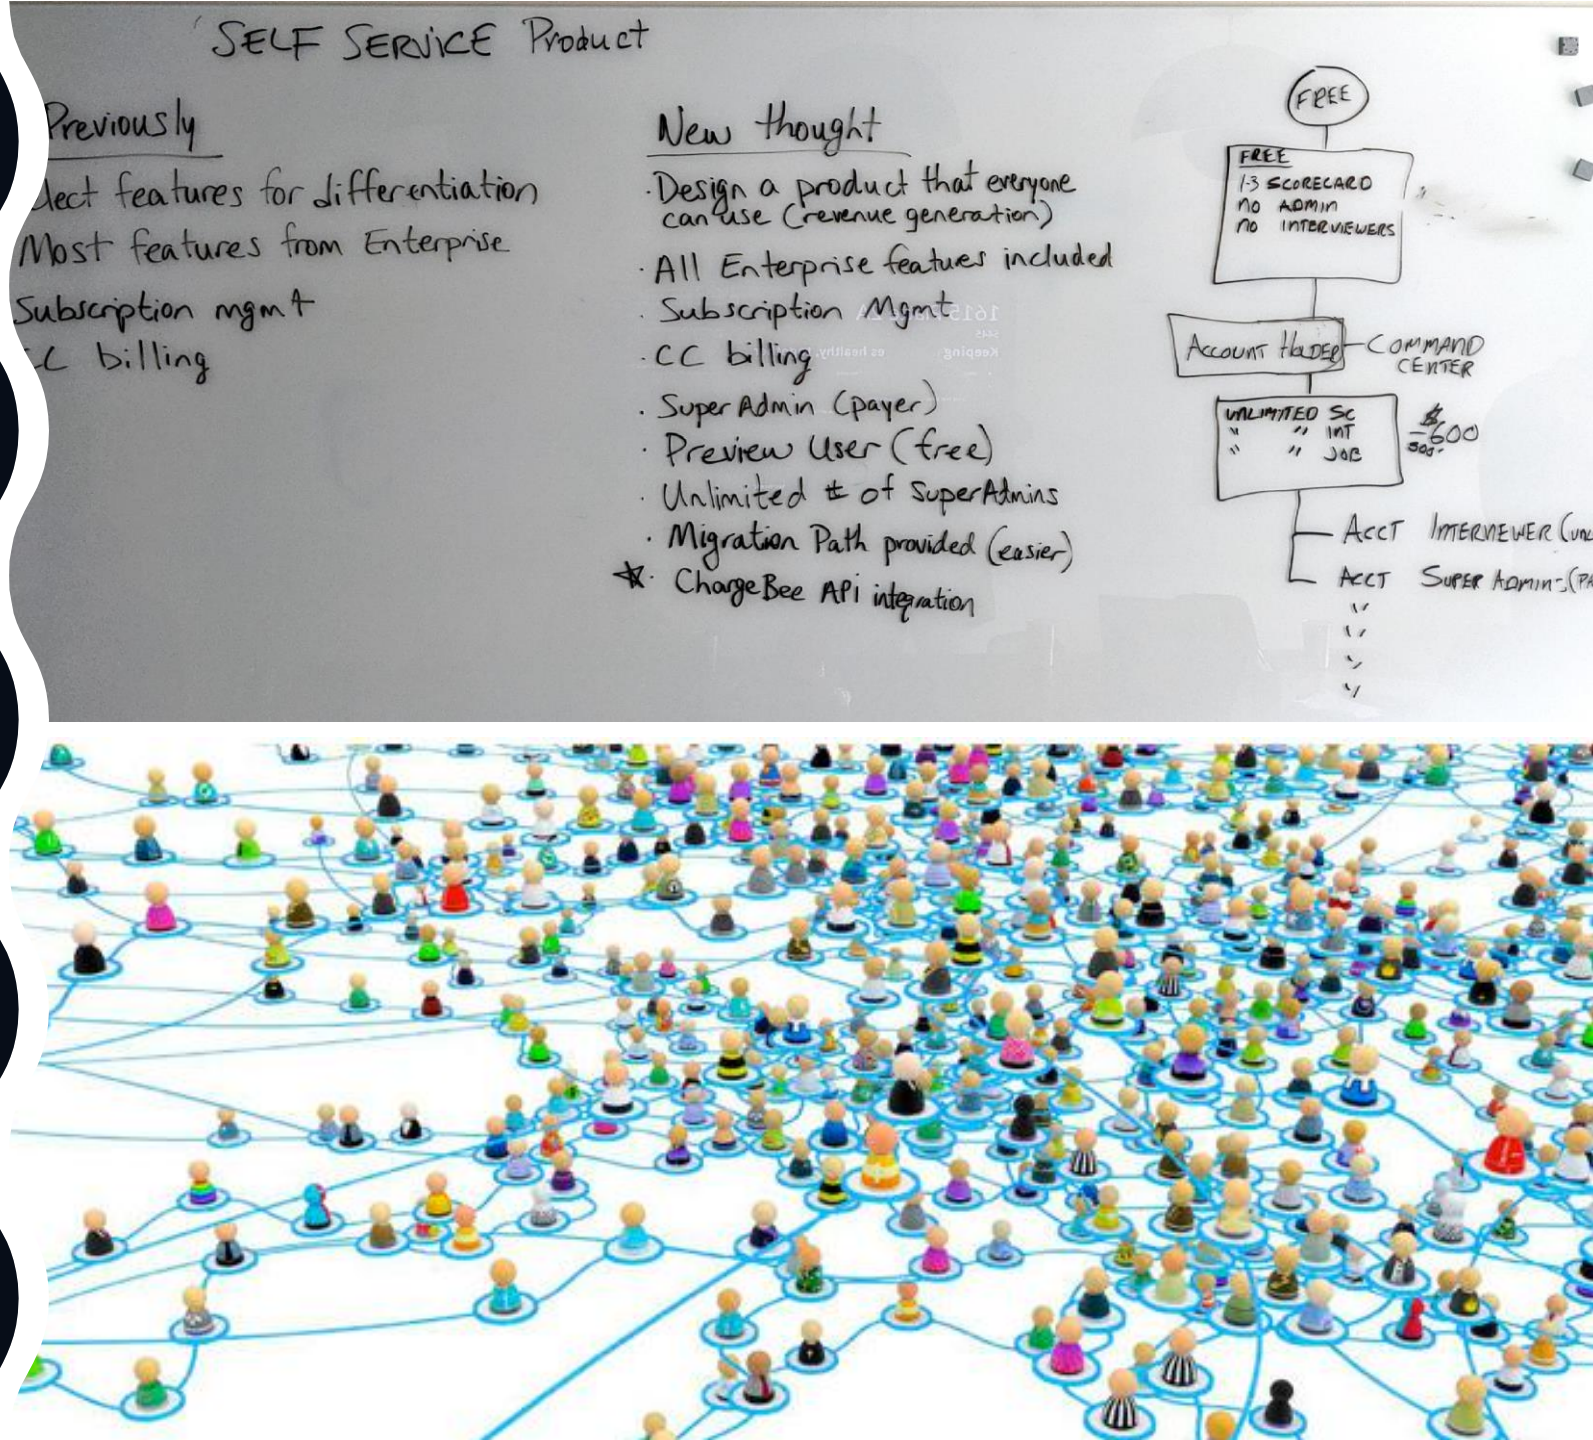 SELF SERVICE Product
Previously
lect features for differentiation
Most features from Enterprise
Subscription mgmt
CC billing
New thought
· Design a product that everyone
can use (revenue generation)
· All Enterprise features included
· Subscription Mgmt
· CC billing
· Super Admin (payer)
· Preview User (free)
· Unlimited # of SuperAdmins
· Migration Path provided (easier)
★ · ChargeBee API integration
FREE
FREE
1-3 SCORECARD
NO ADMIN
NO INTERVIEWERS
ACCOUNT HOLDER - COMMAND
CENTER
UNLIMITED SC
" " INT
" " JOB
$
600
ACCT INTERVIEWER (
ACCT SUPER ADMIN - (PA
"
"
"
"